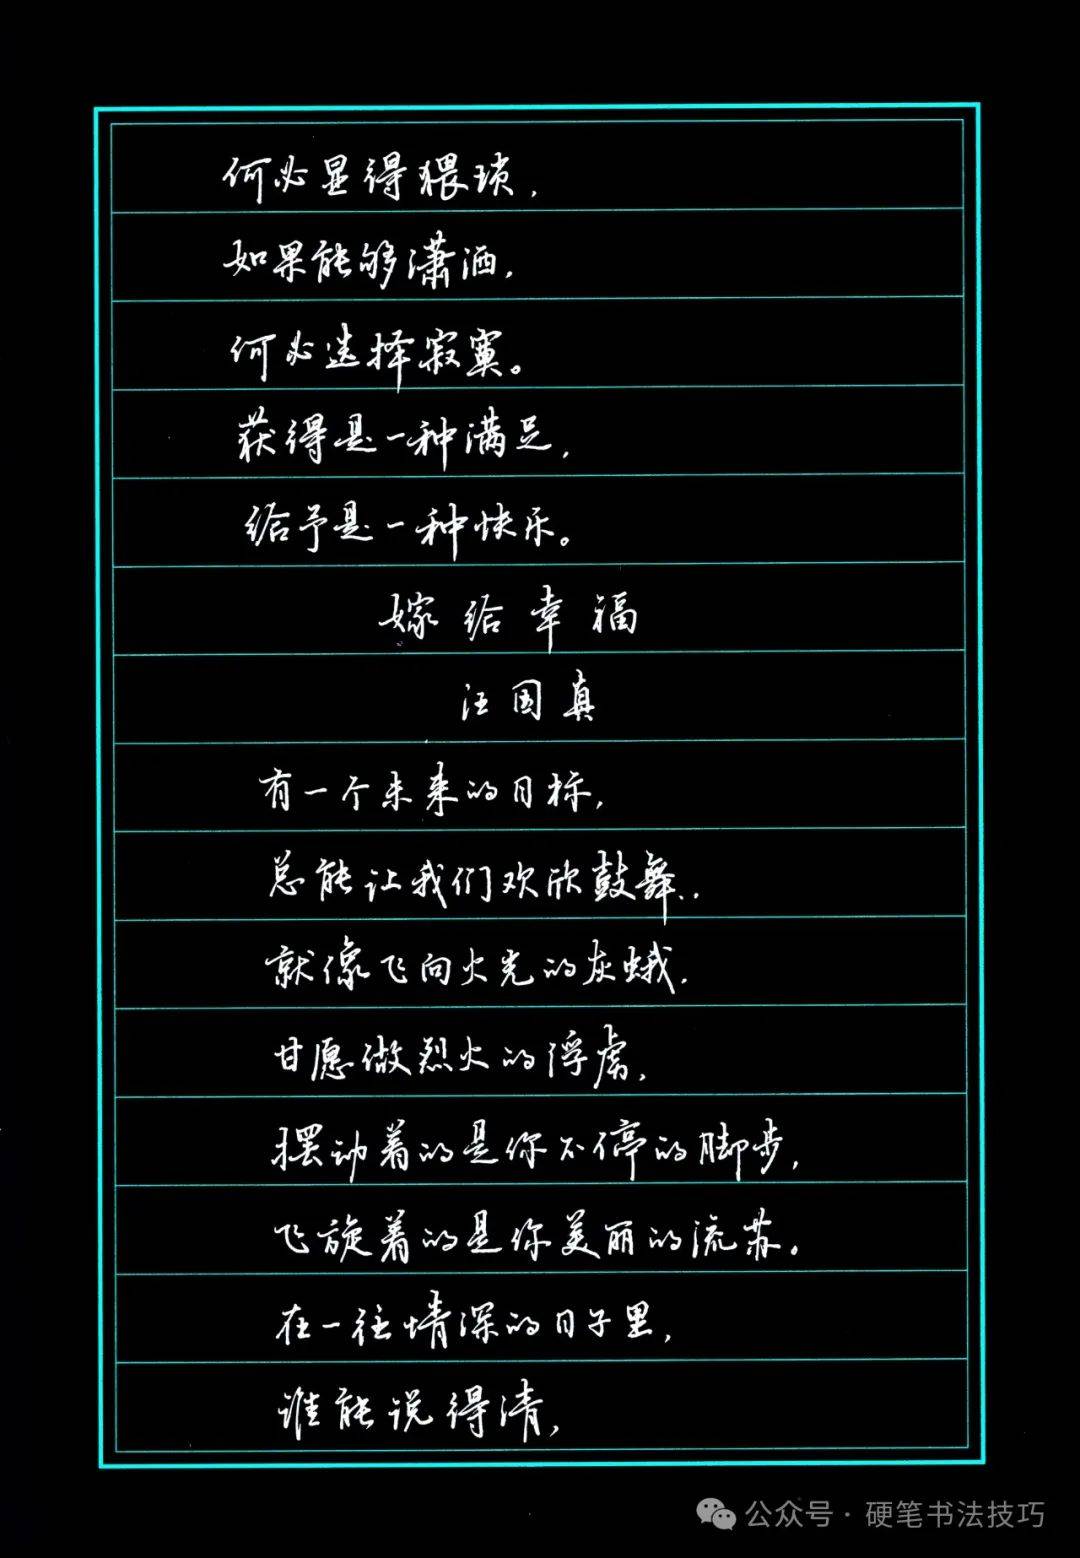 何必显得猥琐，
如果能够潇洒，
何必选择寂寞。
获得是一种满足，
给予是一种快乐。
嫁给幸福
汪国真
有一个未来的目标，
总能让我们欢欣鼓舞..
就像飞向火光的灰蛾，
甘愿做烈火的俘虏，
摆动着的是你不停的脚步，
飞旋着的是你美丽的流苏。
在一往情深的日子里，
谁能说得清，
公众号·硬笔书法技巧